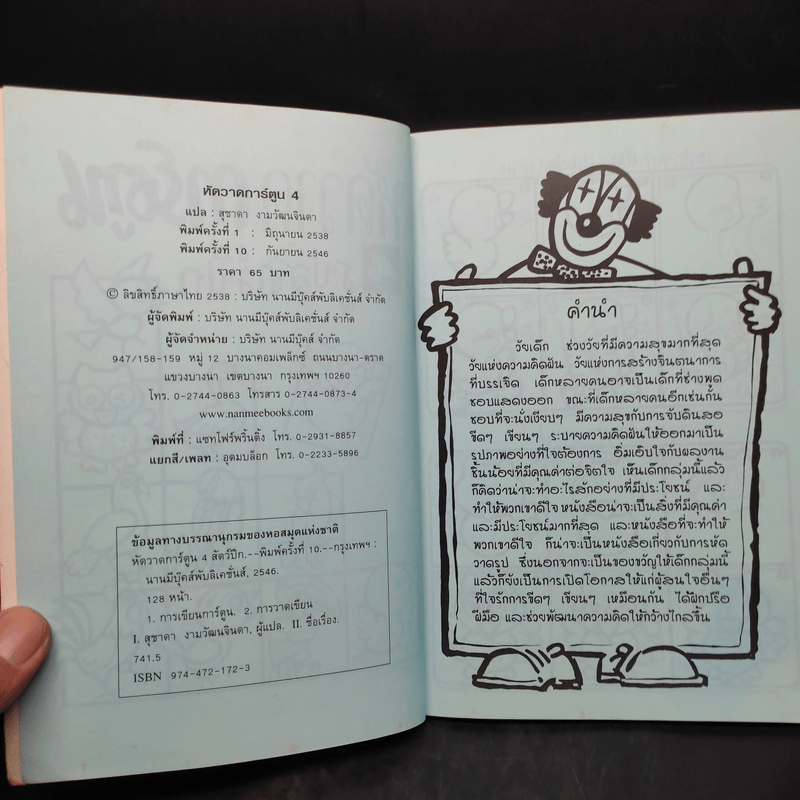 หัดวาดการ์ตูน 4
แปล : สุชาดา งามวัฒนจินดา
พิมพ์ครั้งที่ 1 : มิถุนายน 2538
พิมพ์ครั้งที่ 10 : กันยายน 2546
ราคา 65 บาท
© ลิขสิทธิ์ภาษาไทย 2538 : บริษัท นานมีบุ๊คส์พับลิเคชั่นส์ จำกัด
ผู้จัดพิมพ์ : บริษัท นานมีบุ๊คส์พับลิเคชั่นส์ จำกัด
ผู้จัดจำหน่าย : บริษัท นานมีบุ๊คส์ จำกัด
947/158-159 หมู่ 12 บางนาคอมเพล็กซ์ ถนนบางนา-ตราด
แขวงบางนา เขตบางนา กรุงเทพฯ 10260
โทร. 0-2744-0863 โทรสาร 0-2744-0873-4
www.nanmeebooks.com
พิมพ์ที่ : แซทโฟร์พริ้นติ้ง โทร. 0-2931-8857
แยกสี/เพลท : อุดมบล็อก โทร. 0-2233-5896
ข้อมูลทางบรรณานุกรมของหอสมุดแห่งชาติ
หัดวาดการ์ตูน 4 สัตว์ปีก.--พิมพ์ครั้งที่ 10.--กรุงเทพฯ :
นานมีบุ๊คส์พับลิเคชั่นส์, 2546.
128 หน้า.
1. การเขียนการ์ตูน. 2. การวาดเขียน
I. สุชาดา งามวัฒนจินดา, ผู้แปล. II. ชื่อเรื่อง.
741.5
ISBN 974-472-172-3
คำนำ
วัยเด็ก ช่วงวัยที่มีความสุขมากที่สุด
วัยแห่งความคิดฝัน วัยแห่งการสร้างจินตนาการ
ที่บรรเจิด เด็กหลายคนอาจเป็นเด็กที่ช่างพูด
ชอบแสดงออก ขณะที่เด็กหลายคนอีกเช่นกัน
ชอบที่จะนั่งเงียบๆ มีความสุขกับการจับดินสอ
ขีดๆ เขียนๆ ระบายความคิดฝันให้ออกมาเป็น
รูปภาพอย่างที่ใจต้องการ อิ่มเอิบใจกับผลงาน
ชิ้นน้อยที่มีคุณค่าต่อจิตใจ เห็นเด็กกลุ่มนี้แล้ว
ก็คิดว่าน่าจะทำอะไรสักอย่างที่มีประโยชน์ และ
ทำให้พวกเขาดีใจ หนังสือน่าจะเป็นสิ่งที่มีคุณค่า
และมีประโยชน์มากที่สุด และหนังสือที่จะทำให้
พวกเขาดีใจ ก็น่าจะเป็นหนังสือเกี่ยวกับการหัด
วาดรูป ซึ่งนอกจากจะเป็นของขวัญให้เด็กกลุ่มนี้
แล้วก็ยังเป็นการเปิดโอกาสให้แก่ผู้สนใจอื่นๆ
ที่ใจรักการขีดๆ เขียนๆ เหมือนกัน ได้ฝึกปรือ
ฝีมือ และช่วยพัฒนาความคิดให้กว้างไกลขึ้น